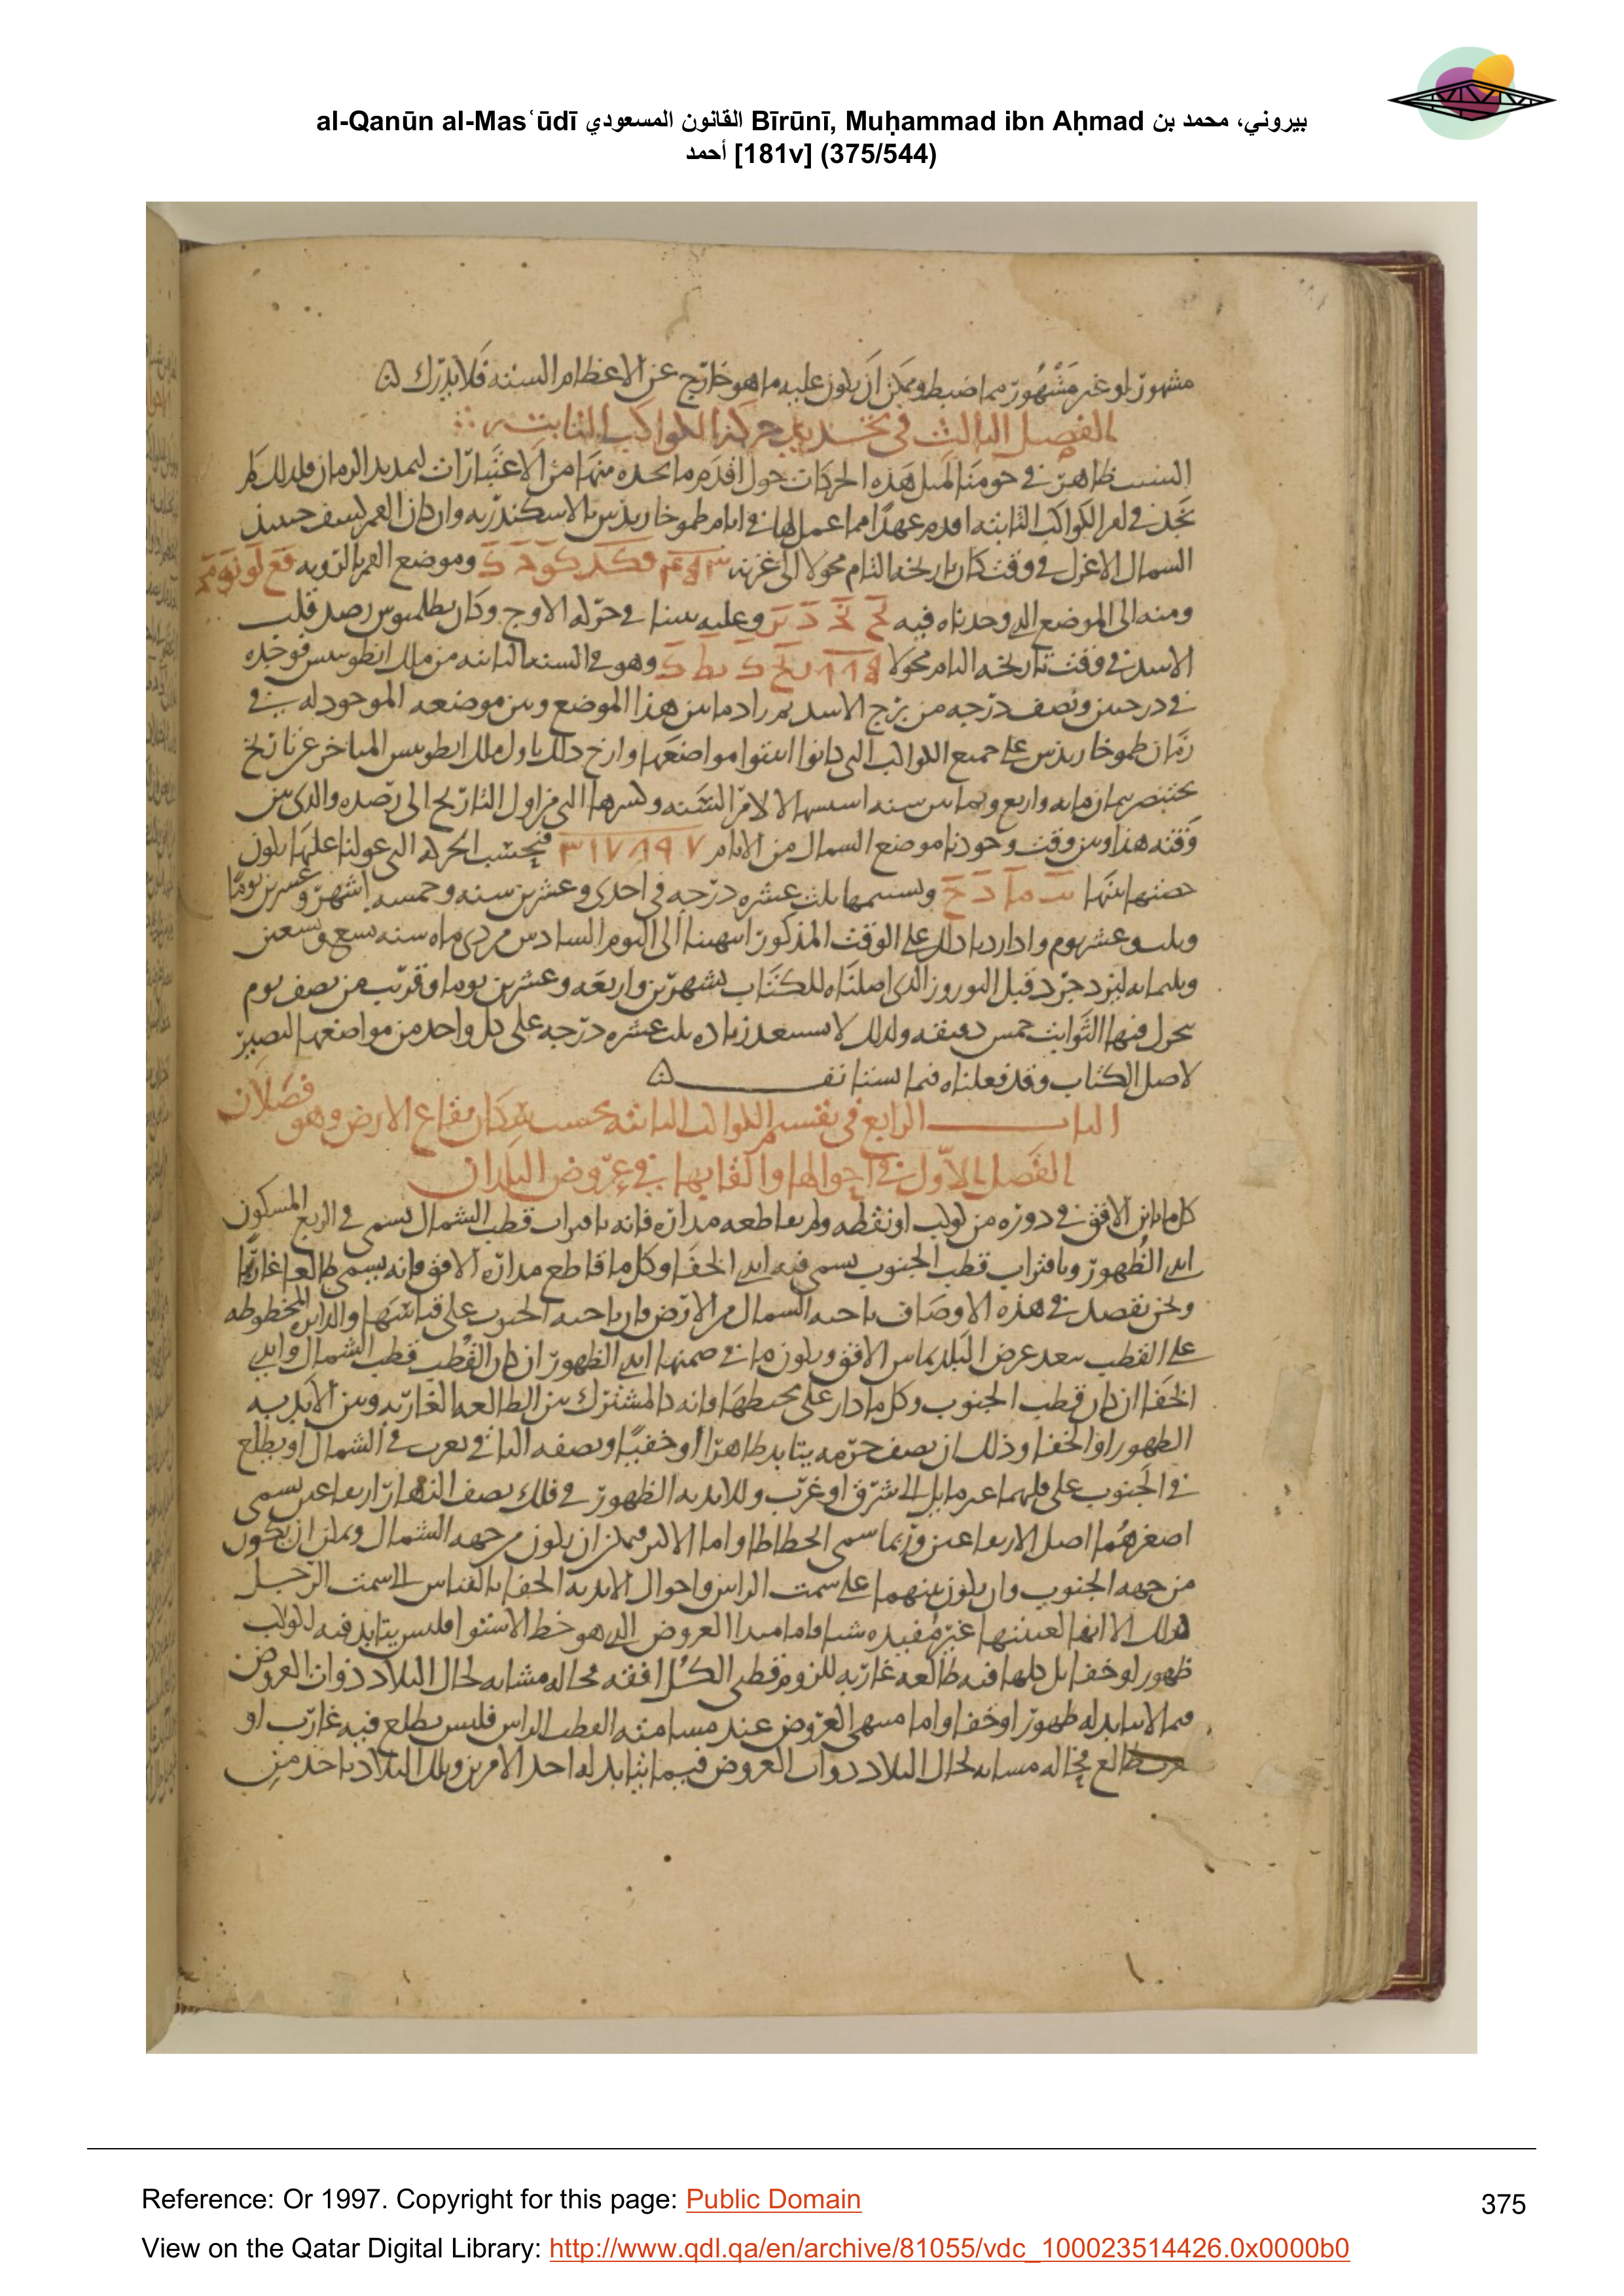 al-Qanūn al-Masʿūdī القانون المسعودي Bīrūnī, Muḥammad ibn Aḥmad بيروني، محمد بن
أحمد [181v] (375/544)
مشهور او غير مشهور مما ضبط ويمكن ان يكون عليه ما هو خارج عن الاعظام الستة فلا يدرك
الفصل الثالث في تحديد حركة الكواكب الثابتة
السبب ظاهر في حومنا لمثل هذه الحركات حول اقدم ما نجده منها من الاعتبارات لتمديد الزمان فلذلك لم
نجد في امر الكواكب الثابتة اقدم عهدا مما عمل لها في ايام طموخارس بالاسكندرية وان كان القمر كسف حينئذ
السماك الاعزل في وقت كان تاريخه التام محولا الى غزنه وموضع القمر بالرؤية
ومنه الى الموضع الذي وجدناه فيه وعليه بنينا في حركة الاوج وكان بطلميوس رصد قلب
الاسد في وقت تاريخه التام محولا وهو في السنة الثانية من ملك انطونينس فوجده
في درجتين ونصف درجة من برج الاسد ثم زاد ما بين هذا الموضع وبين موضعه الموجود له في
زمان طموخارس على جميع الكواكب التي كانوا اثبتوا مواضعها وارخ ذلك باول ملك انطونينس المتاخر عن تاريخ
بختنصر بثمان مائة واربع وثمانين سنة الى رصده والذي بين
وقته هذا وبين وقت وجودنا موضع السماك من الايام ٣١٧٨٩٧ فبحسب الحركة التي عولنا عليها يكون
حصتها منها ولنسمها ثلث عشرة درجة في احدى وعشرين سنة وخمسة اشهر وعشرين يوما
وثلث وعشر يوم واذا زدنا ذلك على الوقت المذكور انتهينا الى اليوم السادس من دي ماه سنة تسع وتسعين
وثلثمائة ليزدجرد قبل النوروز الذي اصلناه للكتاب بشهرين واربعة وعشرين يوما وقريب من نصف يوم
يتحرك فيها الثوابت خمس دقيقة ولذلك لا نستبعد زيادة ثلث عشرة درجة على كل واحد من مواضعها لتصير
لاصل الكتاب وقد فعلناه فيما نستانف
الباب الرابع في تقسيم الكواكب الثابتة بحسب بقاع الارض وهو فصلان
الفصل الاول في احوالها والقابها في عروض البلدان
كل ما باين الافق في دوره من كوكب او نقطة ولم يقاطعه مداره فانه باقتراب قطب الشمال يسمى في الربع المسكون
ابدي الظهور وباقتراب قطب الجنوب يسمى فيه ابدي الخفا وكل ما قاطع مداره الافق فانه يسمى طالعا غاربا
ونحن نقصد في هذه الاوصاف ناحية الشمال من الارض فان ناحية الجنوب على قياسها والدايرة المخطوطة
على القطب ببعد عرض البلد يماس الافق ويكون ما في ضمنها ابدي الظهور ان كان القطب قطب الشمال وابدي
الخفا ان كان قطب الجنوب وكل ما دار على محيطها فانه كالمشترك بين الطالعة الغاربة وبين الابدية
الظهور او الخفا وذلك ان نصف جرمه يتابد ظاهرا او خفيا ونصفه الثاني يغرب في الشمال او يطلع
في الجنوب على كليهما غير مايل الى شرق او غرب وللابدية الظهور في فلك نصف النهار ارتفاعين يسمى
اصغرهما اصل الارتفاعين وربما سمي انحطاطا واما الاكبر فيمكن ان يكون من جهة الشمال ويمكن ان يكون
من جهة الجنوب وان يكون بينهما على سمت الراس واحوال الابدية الخفا بالقياس الى سمت الرجل
كذلك الا انها لغيبتها غير مفيدة شيا واما مبدا العروض الذي هو خط الاستوا فليس يتابد فيه لكوكب
ظهور او خفا بل كلها فيه طالعة غاربة للزوم قطبي الكل افقه فحاله مشابه لحال البلاد ذوات العروض
فيما لا يتابد له ظهور او خفا واما منتهى العروض عند مسامتة القطب الراس فليس يطلع فيه غارب او
يغرب طالع فحاله مشابه لحال البلاد ذوات العروض فيما يتابد له احد الامرين وتلك البلاد تاخذ من
Reference: Or 1997. Copyright for this page: Public Domain
375
View on the Qatar Digital Library: http://www.qdl.qa/en/archive/81055/vdc_100023514426.0x0000b0